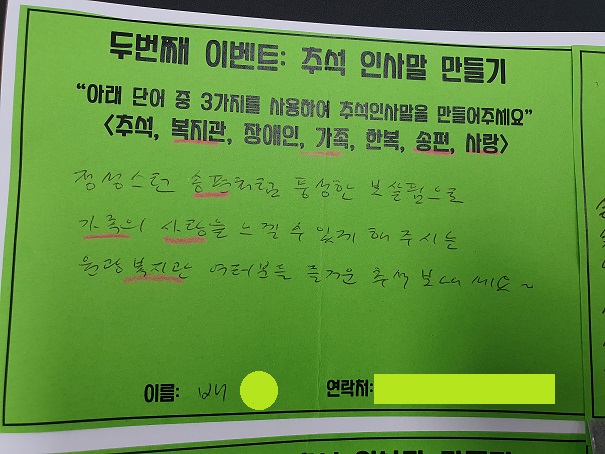 두번째 이벤트: 추석 인사말 만들기
“아래 단어 중 3가지를 사용하여 추석인사말을 만들어주세요”
<추석, 복지관, 장애인, 가족, 한복, 송편, 사랑>
정성스런 송편처럼 풍성한 보살핌으로
가족의 사랑을 느낄 수 있게 해 주시는
원광 복지관 여러분들 즐거운 추석 보내세요~
이름: 배
연락처: